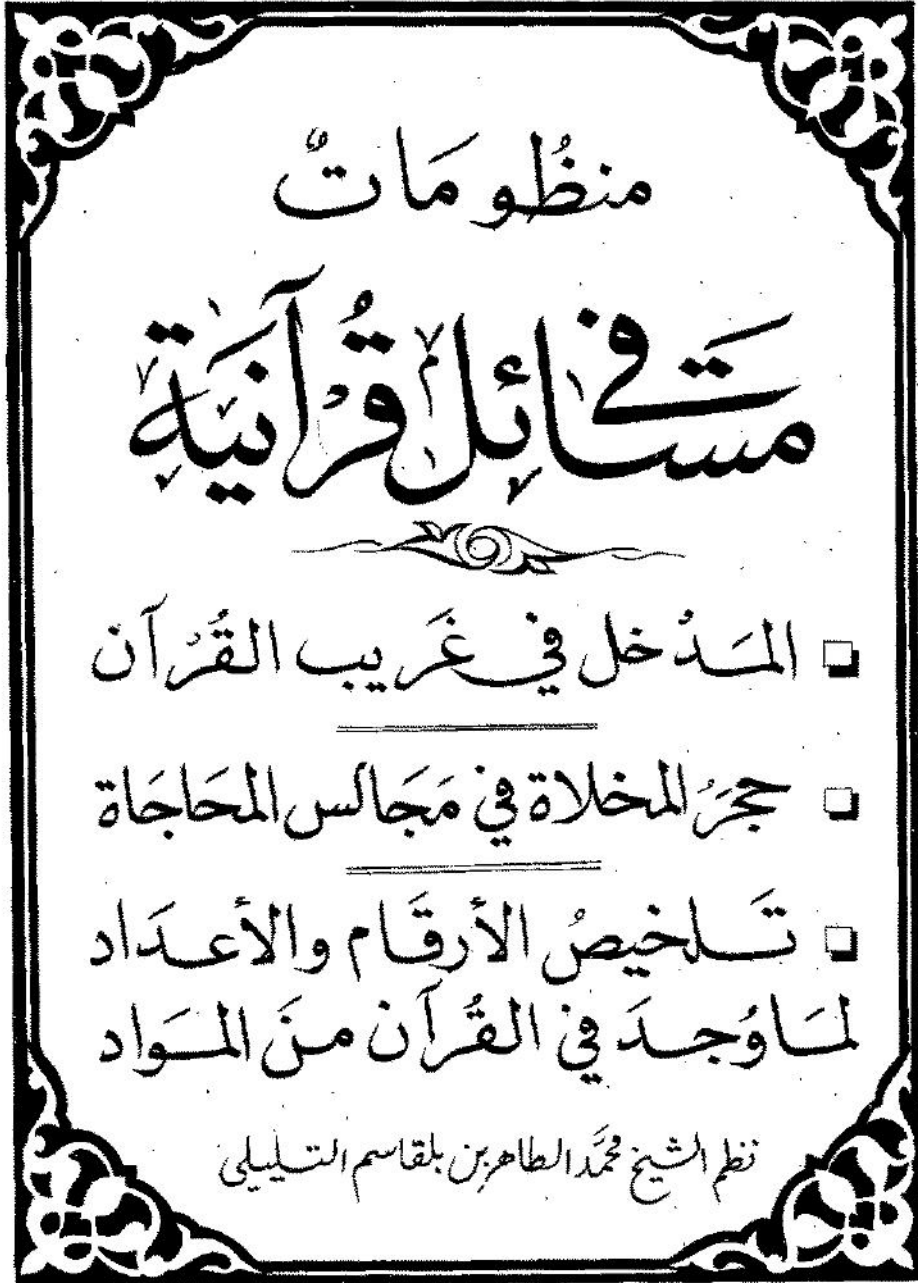 منظُومَاتٌ
في مسَائل قُرآنيَّةٍ
المَدْخل في غَريب القُرْآن
حجَرُ المخلاة في مَجَالس المحَاجَاة
تَلخيصُ الأرقَام والأعدَاد
لمَا وُجدَ في القُرآن منَ المَواد
نظم الشيخ محمَّد الطاهر بن بلقاسم التليلي